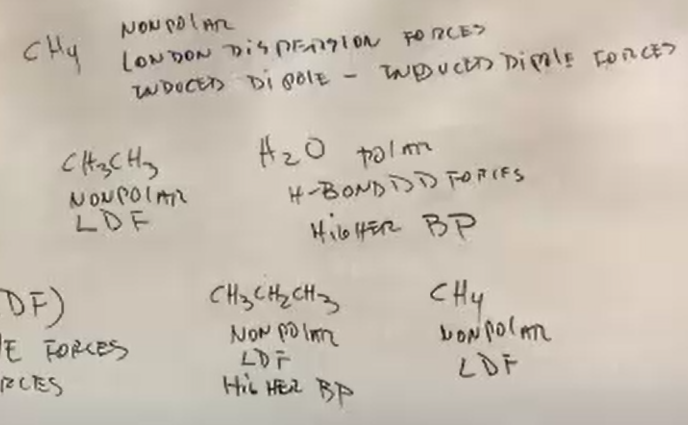 CH4 NONPOLAR
LONDON DISPERSION FORCES
INDUCED DIPOLE - INDUCED DIPOLE FORCES
CH3CH3
NONPOLAR
LDF
H2O POLAR
H-BOND DD FORCES
HIGHER BP
DF)
E FORCES
RCES
CH3CH2CH3
NONPOLAR
LDF
HIGHER BP
CH4
NONPOLAR
LDF